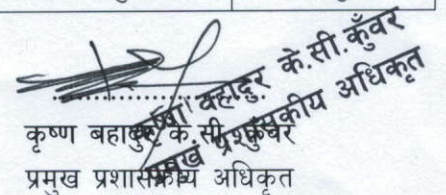 कृष्ण बहादुर के.सी. कुँवर
प्रमुख प्रशासकीय अधिकृत
कृष्ण बहादुर के.सी.कुँवर
प्रमुख प्रशासकीय अधिकृत